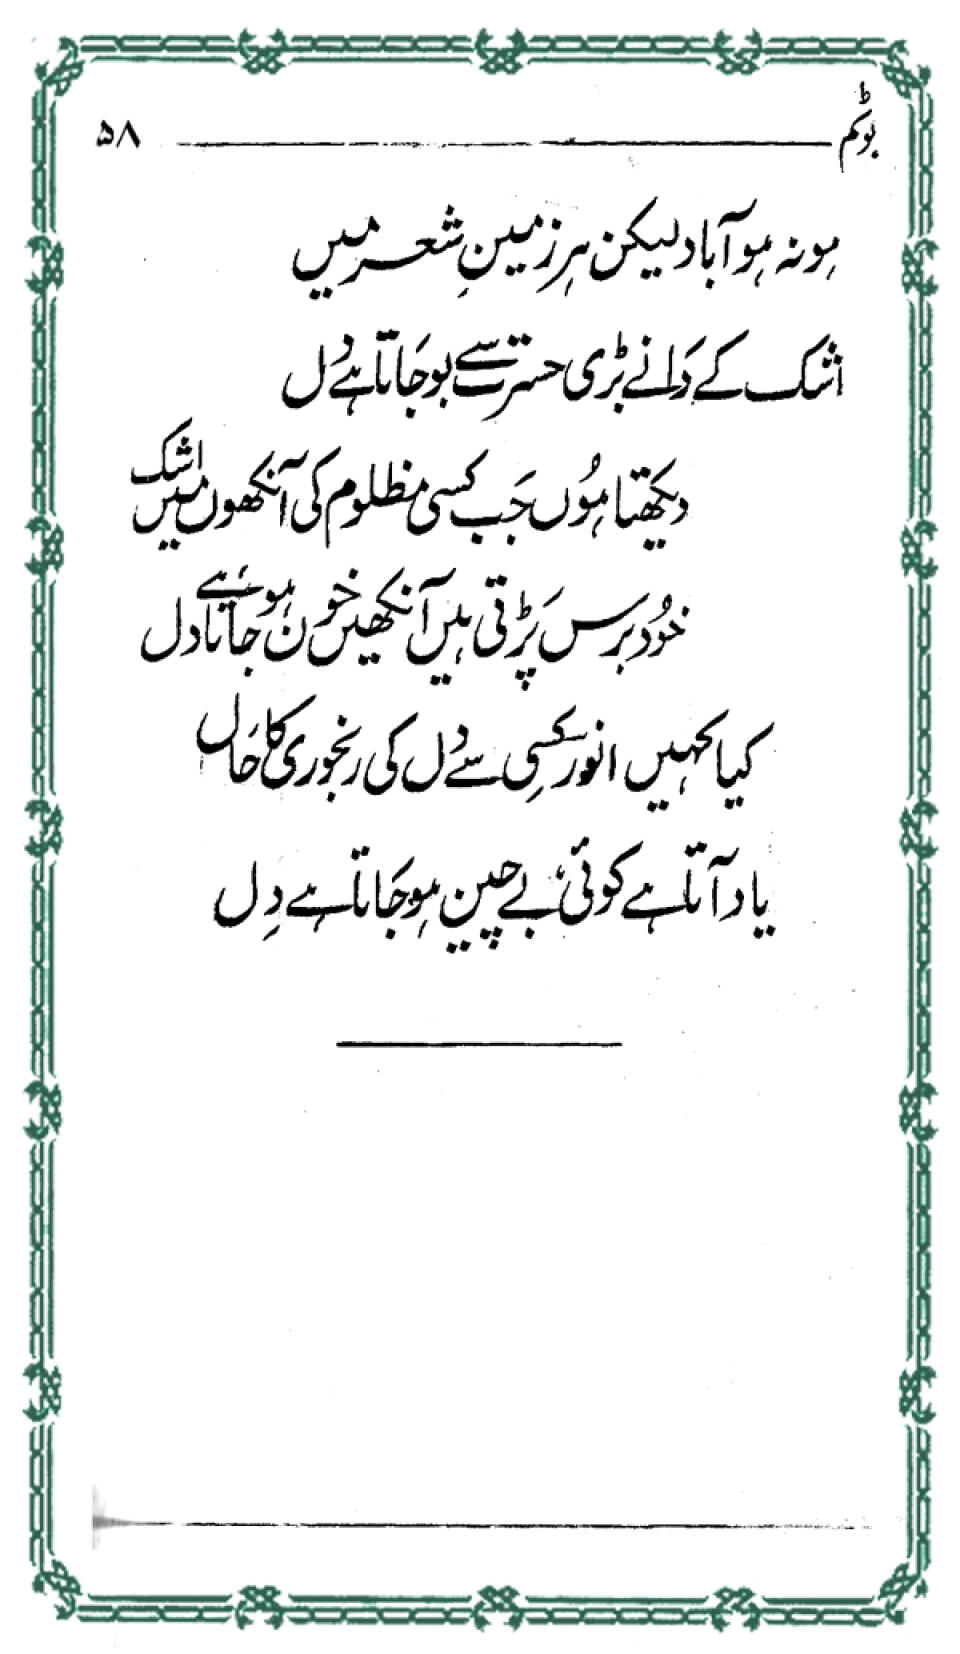 بوٹم ۵۸
ہو نہ ہو آباد لیکن ہر زمینِ شعر میں
اشک کے دَانے بڑی حسرت سے بو جَاتا ہے دل
دیکھتا ہُوں جَب کسی مظلوم کی آنکھوں میں اشک
خُود برس پَڑتی ہیں آنکھیں خون ہو جاتا ہے دل
کیا کہیں انور کسِی سے دل کی رنجوری کا حَال
یاد آتا ہے کوئی، بے چین ہو جَاتا ہے دِل